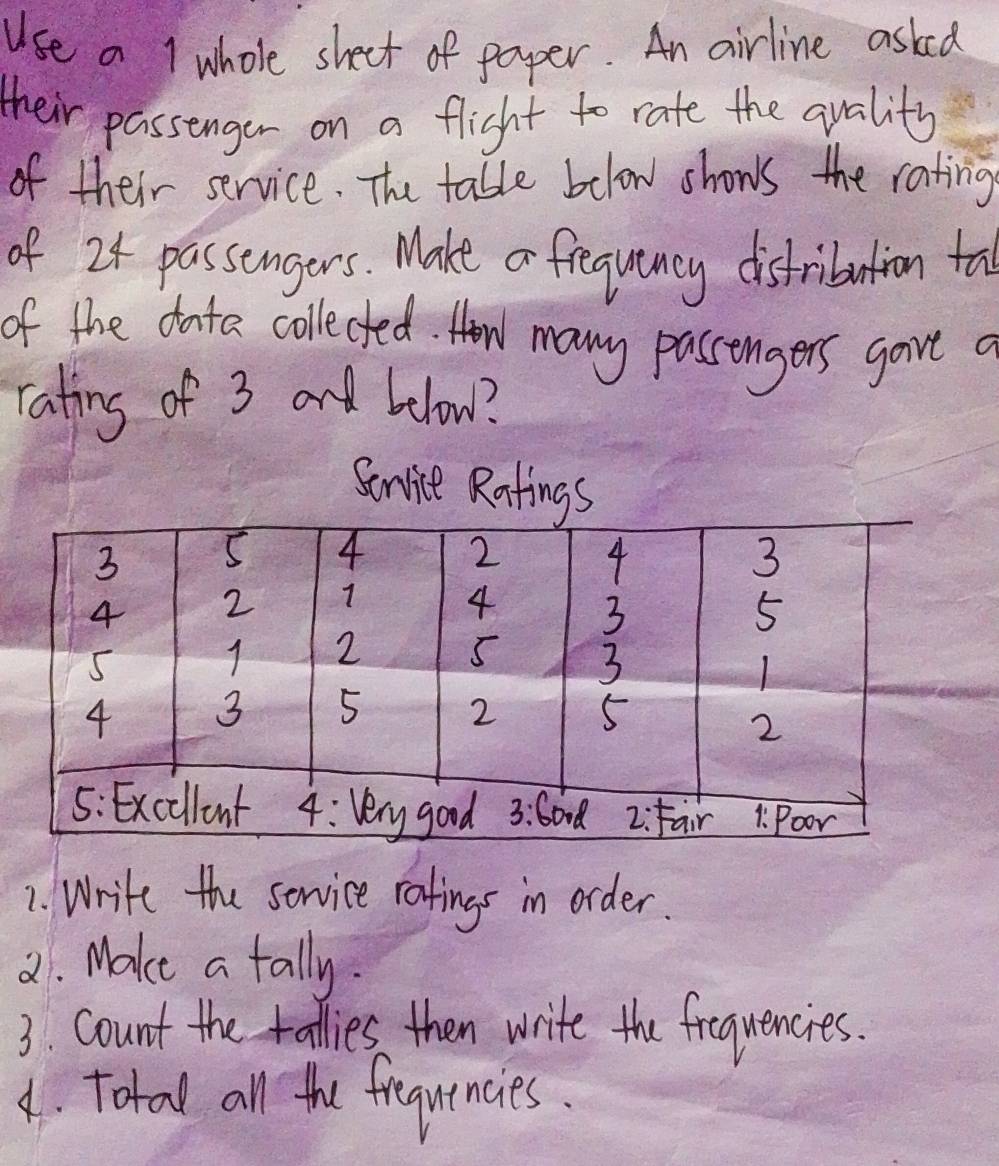 Use a 1 whole sheet of paper. An airline asked
their passenger on a flight to rate the quality
of their service. The table below shows the ratings
of 24 passengers. Make a frequency distribution
of the data collected. How many passengers gave a
rating of 3 and below?
Service Ratings
3 5 4 2 4 3
4 2 1 4 3 5
5 1 2 5 3 1
4 3 5 2 5 2
5: Excellent 4: Very good 3: Good 2: Fair 1: Poor
1. Write the service ratings in order.
2. Make a tally.
3. Count the tallies then write the frequencies.
4. Total all the frequencies.